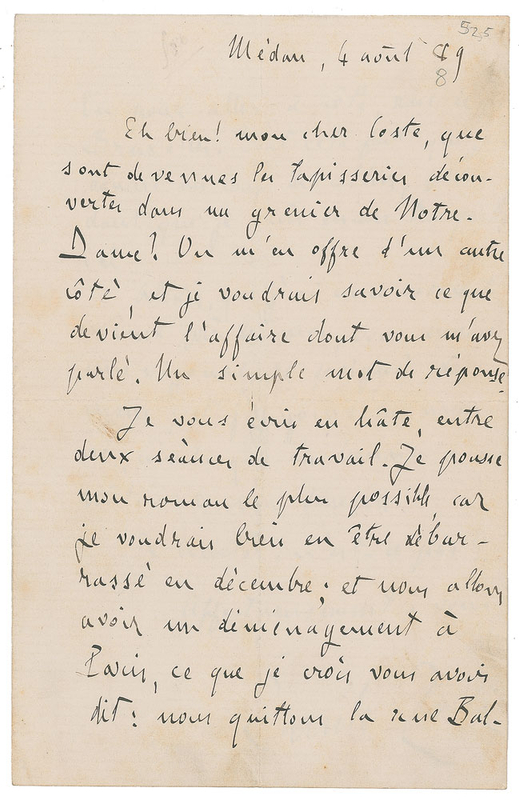 525
Médan, 4 août 89
8
Eh bien! mon cher Coste, que
sont devenues les tapisseries décou-
vertes dans un grenier de Notre-
Dame? On m'en offre d'un autre
côté, et je voudrais savoir ce que
devient l'affaire dont vous m'avez
parlé. Un simple mot de réponse.
Je vous écris en hâte, entre
deux séances de travail. Je pousse
mon roman le plus possible, car
je voudrais bien en être débar-
rassé en décembre; et nous allons
avoir un déménagement à
Paris, ce que je crois vous avoir
dit: nous quittons la rue Bal-